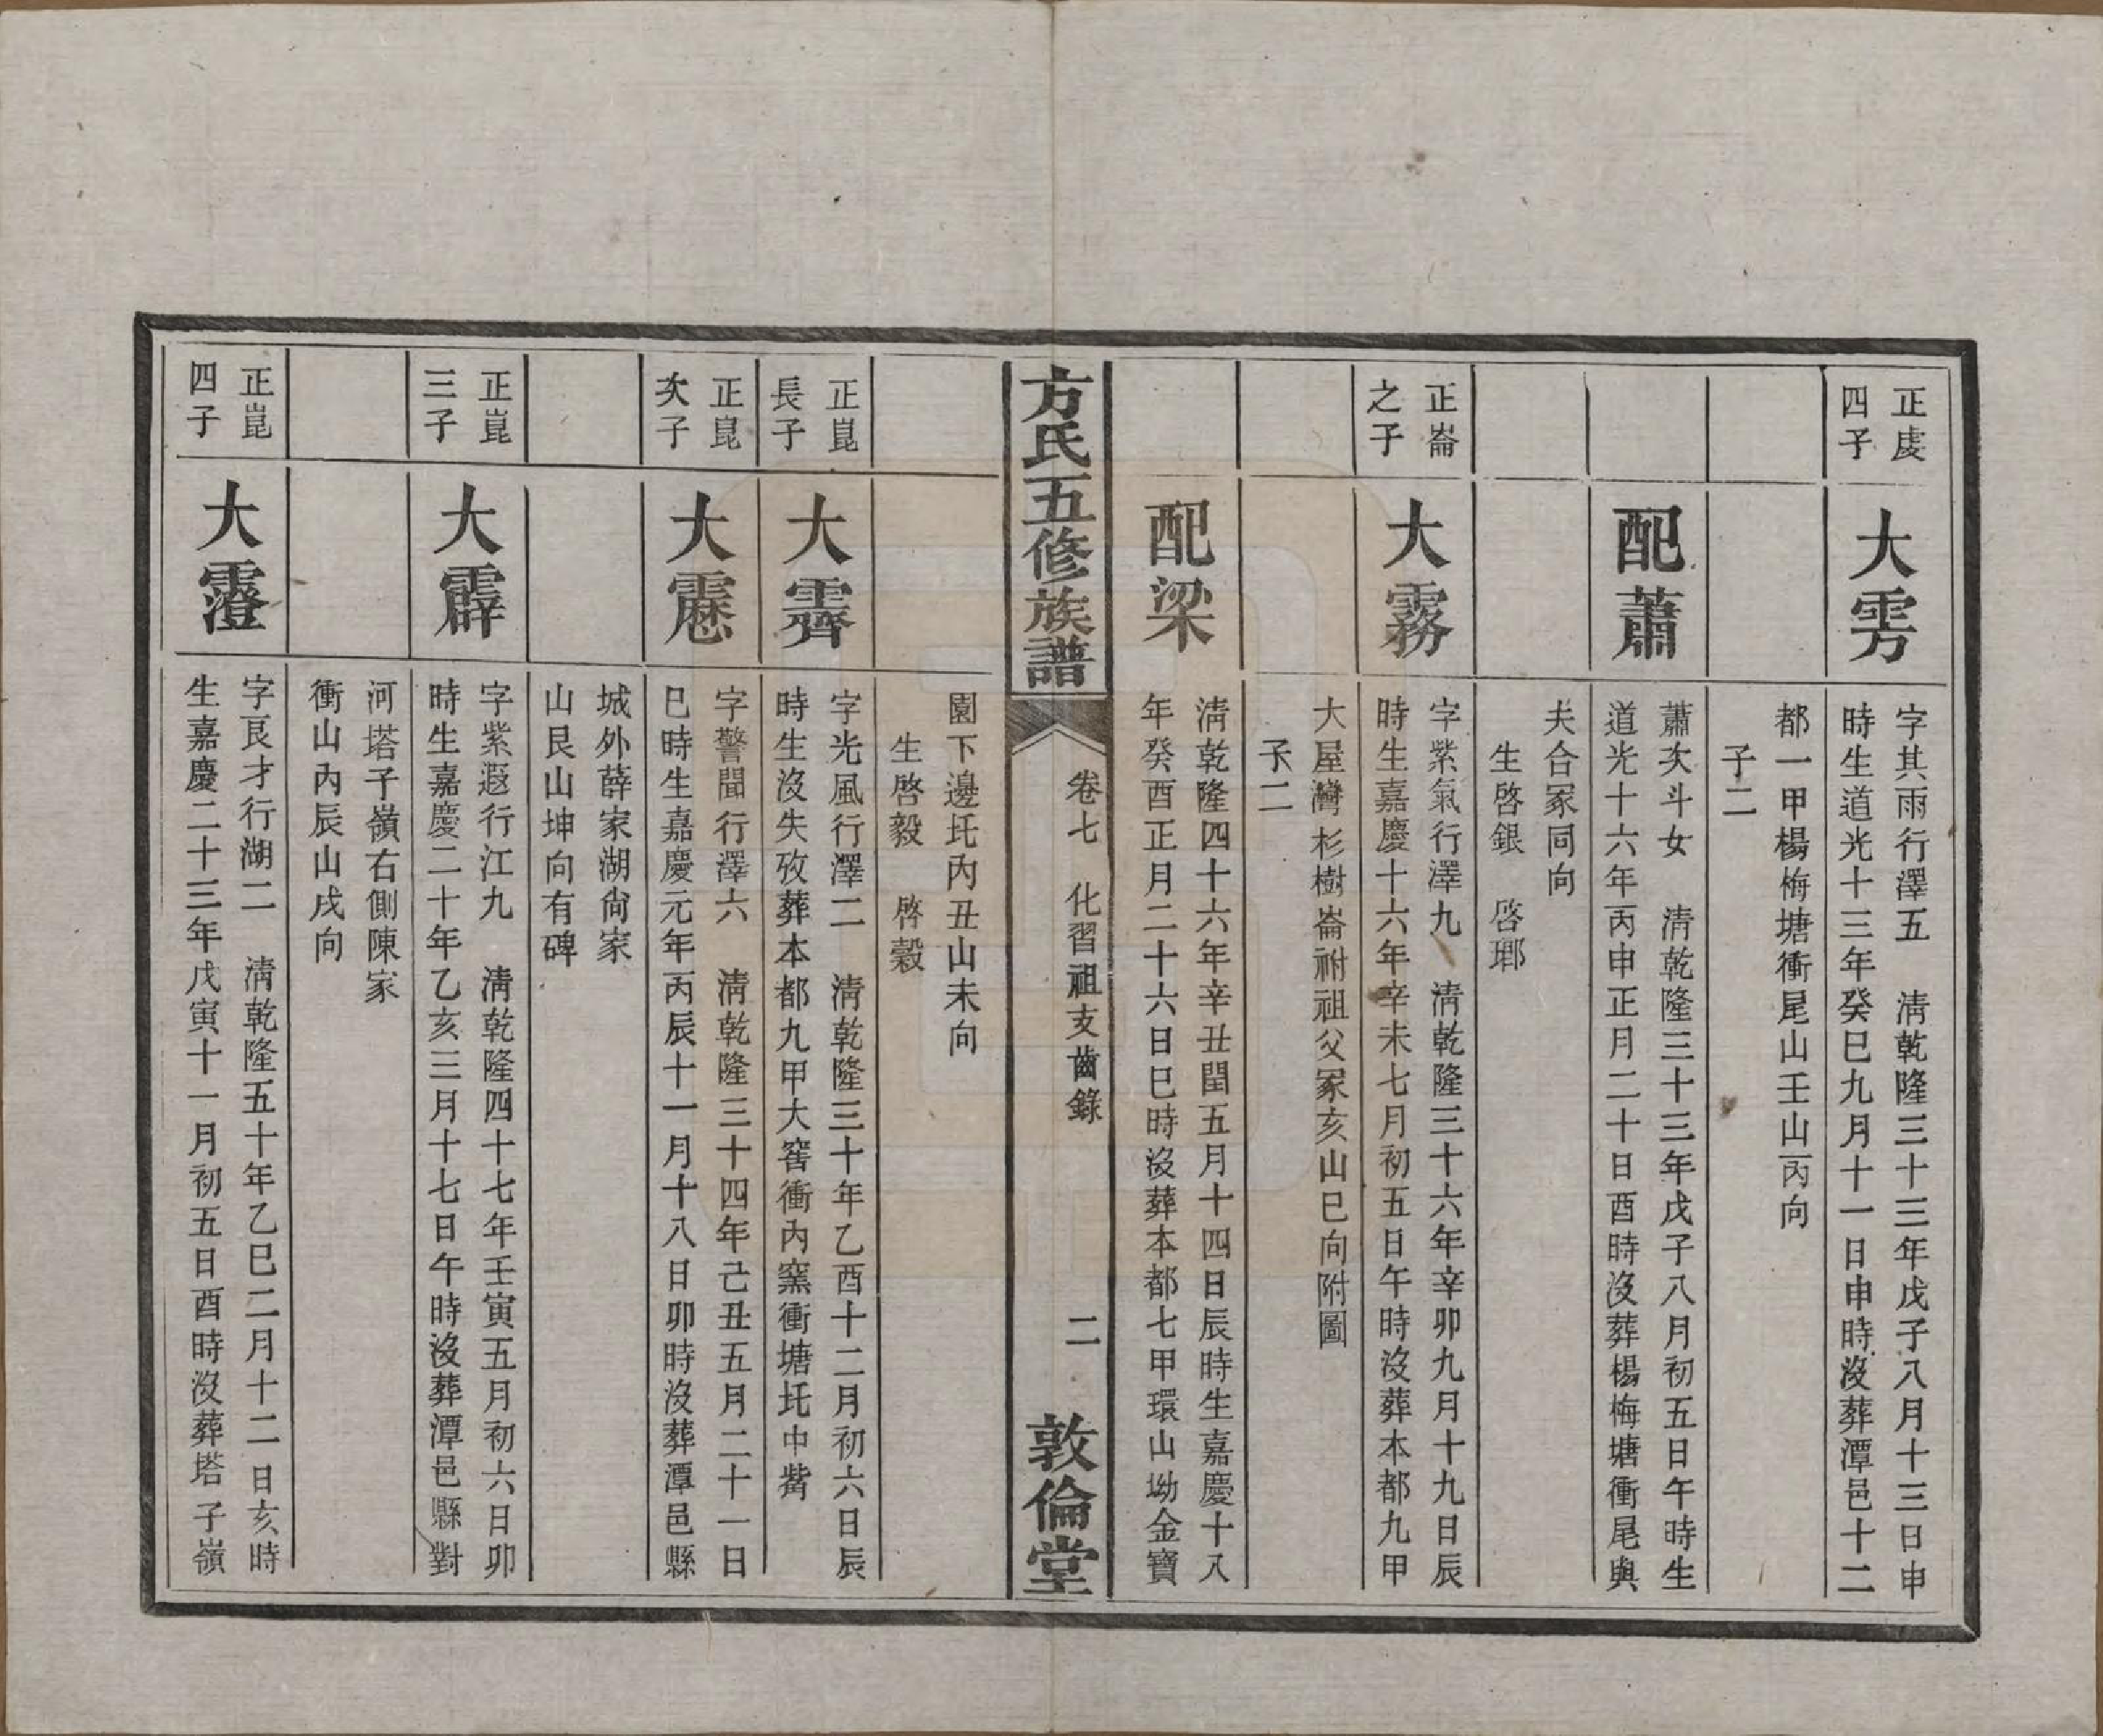 正虔
四子
大雱
字其雨行澤五　清乾隆三十三年戊子八月十三日申
時生道光十三年癸巳九月十一日申時沒葬潭邑十二
都一甲楊梅塘衝尾山壬山丙向
子二
配蕭
蕭次斗女　清乾隆三十三年戊子八月初五日午時生
道光十六年丙申正月二十日酉時沒葬楊梅塘衝尾與
夫合冢同向
生啓銀　啓瑯
正崙
之子
大霧
字紫氣行澤九　清乾隆三十六年辛卯九月十九日辰
時生嘉慶十六年辛未七月初五日午時沒葬本都九甲
大屋灣杉樹崙祔祖父冢亥山巳向附圖
子二
配梁
清乾隆四十六年辛丑閏五月十四日辰時生嘉慶十八
年癸酉正月二十六日巳時沒葬本都七甲環山坳金寶
方氏五修族譜
卷七　化習祖支齒錄
二
敦倫堂
園下邊圫內丑山未向
生啓毅　啓穀
正崑
長子
大霽
字光風行澤二　清乾隆三十年乙酉十二月初六日辰
時生沒失攷葬本都九甲大窖衝內窯衝塘圫中觜
正崑
次子
大靂
字警聞行澤六　清乾隆三十四年己丑五月二十一日
巳時生嘉慶元年丙辰十一月十八日卯時沒葬潭邑縣
城外薛家湖尙家
山艮山坤向有碑
正崑
三子
大霹
字紫遐行江九　清乾隆四十七年壬寅五月初六日卯
時生嘉慶二十年乙亥三月十七日午時沒葬潭邑縣對
河塔子嶺右側陳家
衝山內辰山戌向
正崑
四子
大霪
字艮才行湖二　清乾隆五十年乙巳二月十二日亥時
生嘉慶二十三年戊寅十一月初五日酉時沒葬塔子嶺